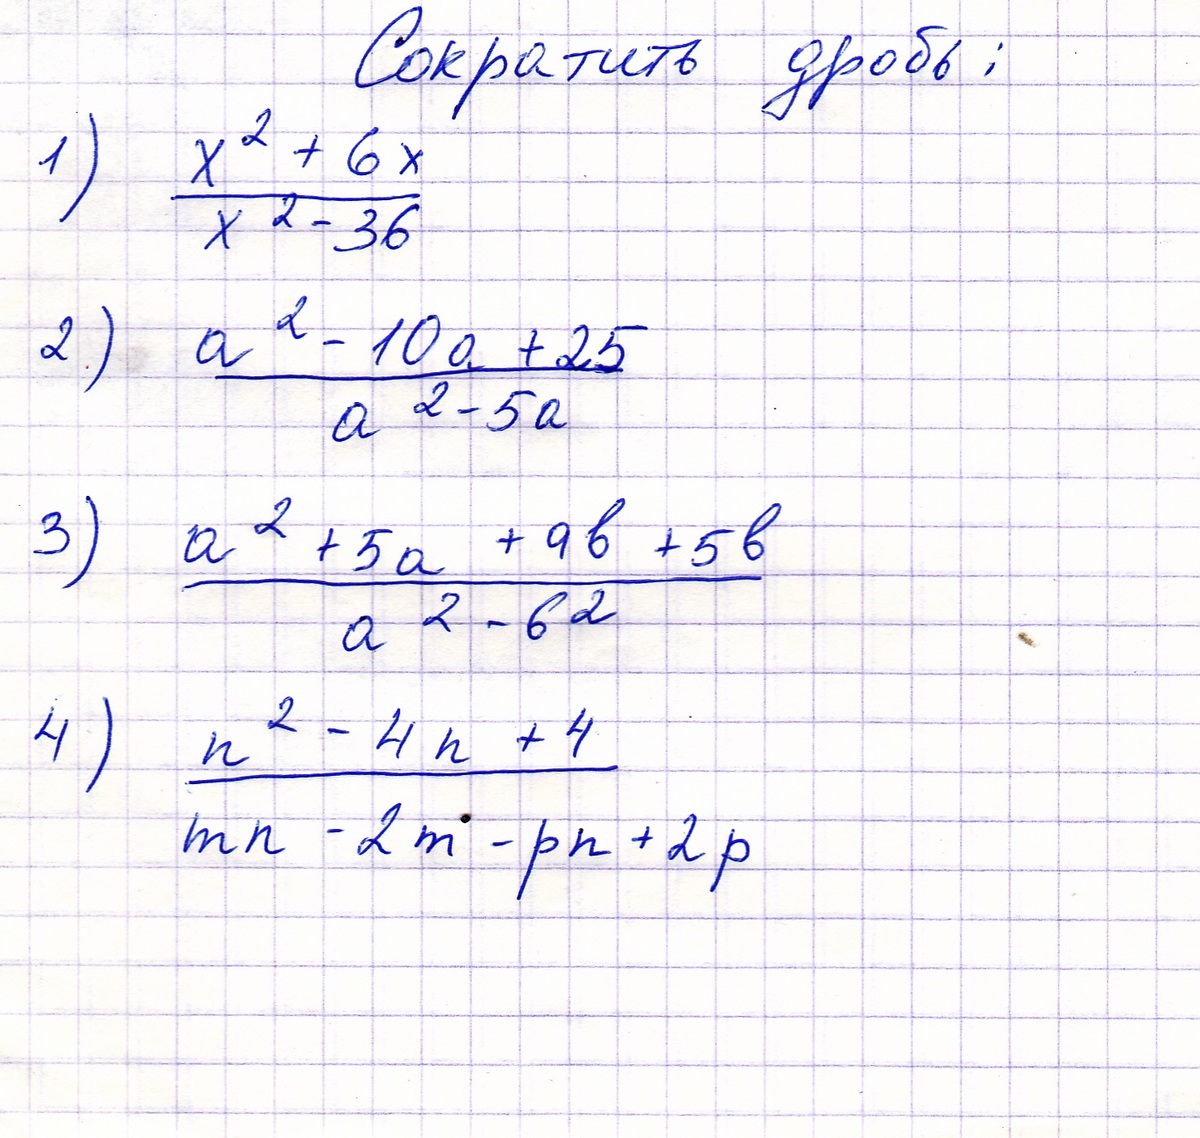 Сократить дробь:
1) x² + 6x
x² - 36
2) a² - 10a + 25
a² - 5a
3) a² + 5a + ab + 5b
a² - b²
4) n² - 4n + 4
mn - 2m - pn + 2p